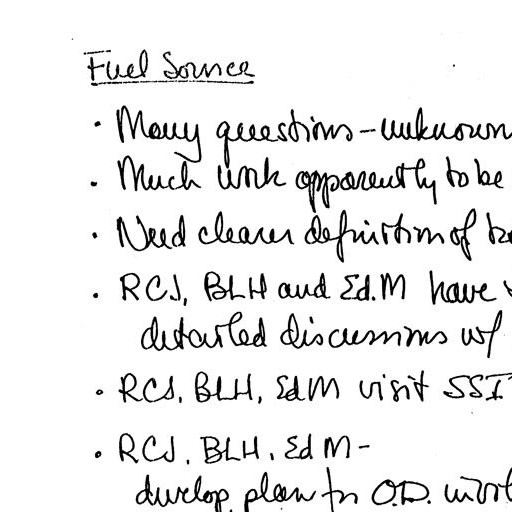 Fuel Source
• Many questions - unknown
• Much work apparently to be
• Need clearer definition of
• RCJ, BLH and Ed.M have
detailed discussions w/
• RCJ, BLH, EdM visit SSI
• RCJ, BLH, Ed M -
develop plan for O.D. work